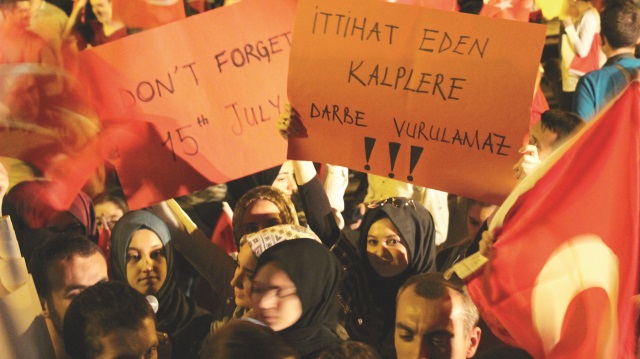 DON'T FORGET
15th JULY
İTTİHAT EDEN
KALPLERE
DARBE VURULAMAZ
!!!